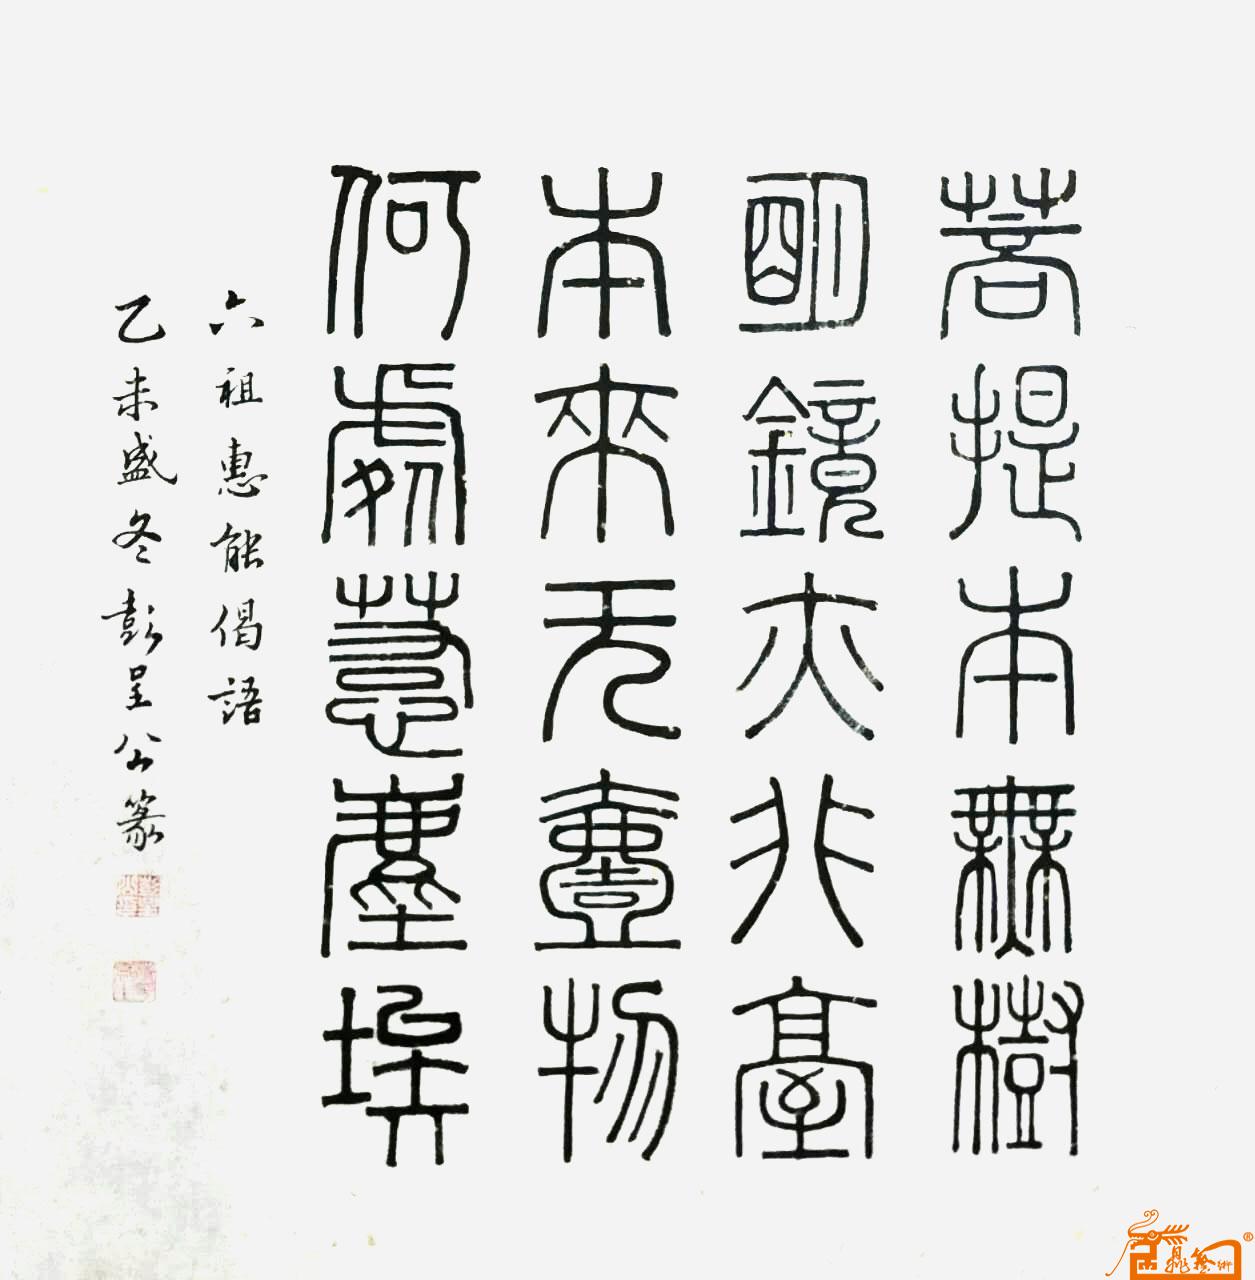 菩提本無樹
明鏡夾非臺
本來无壹物
何處惹塵埃
六祖惠能偈語
乙未盛冬彭呈公篆